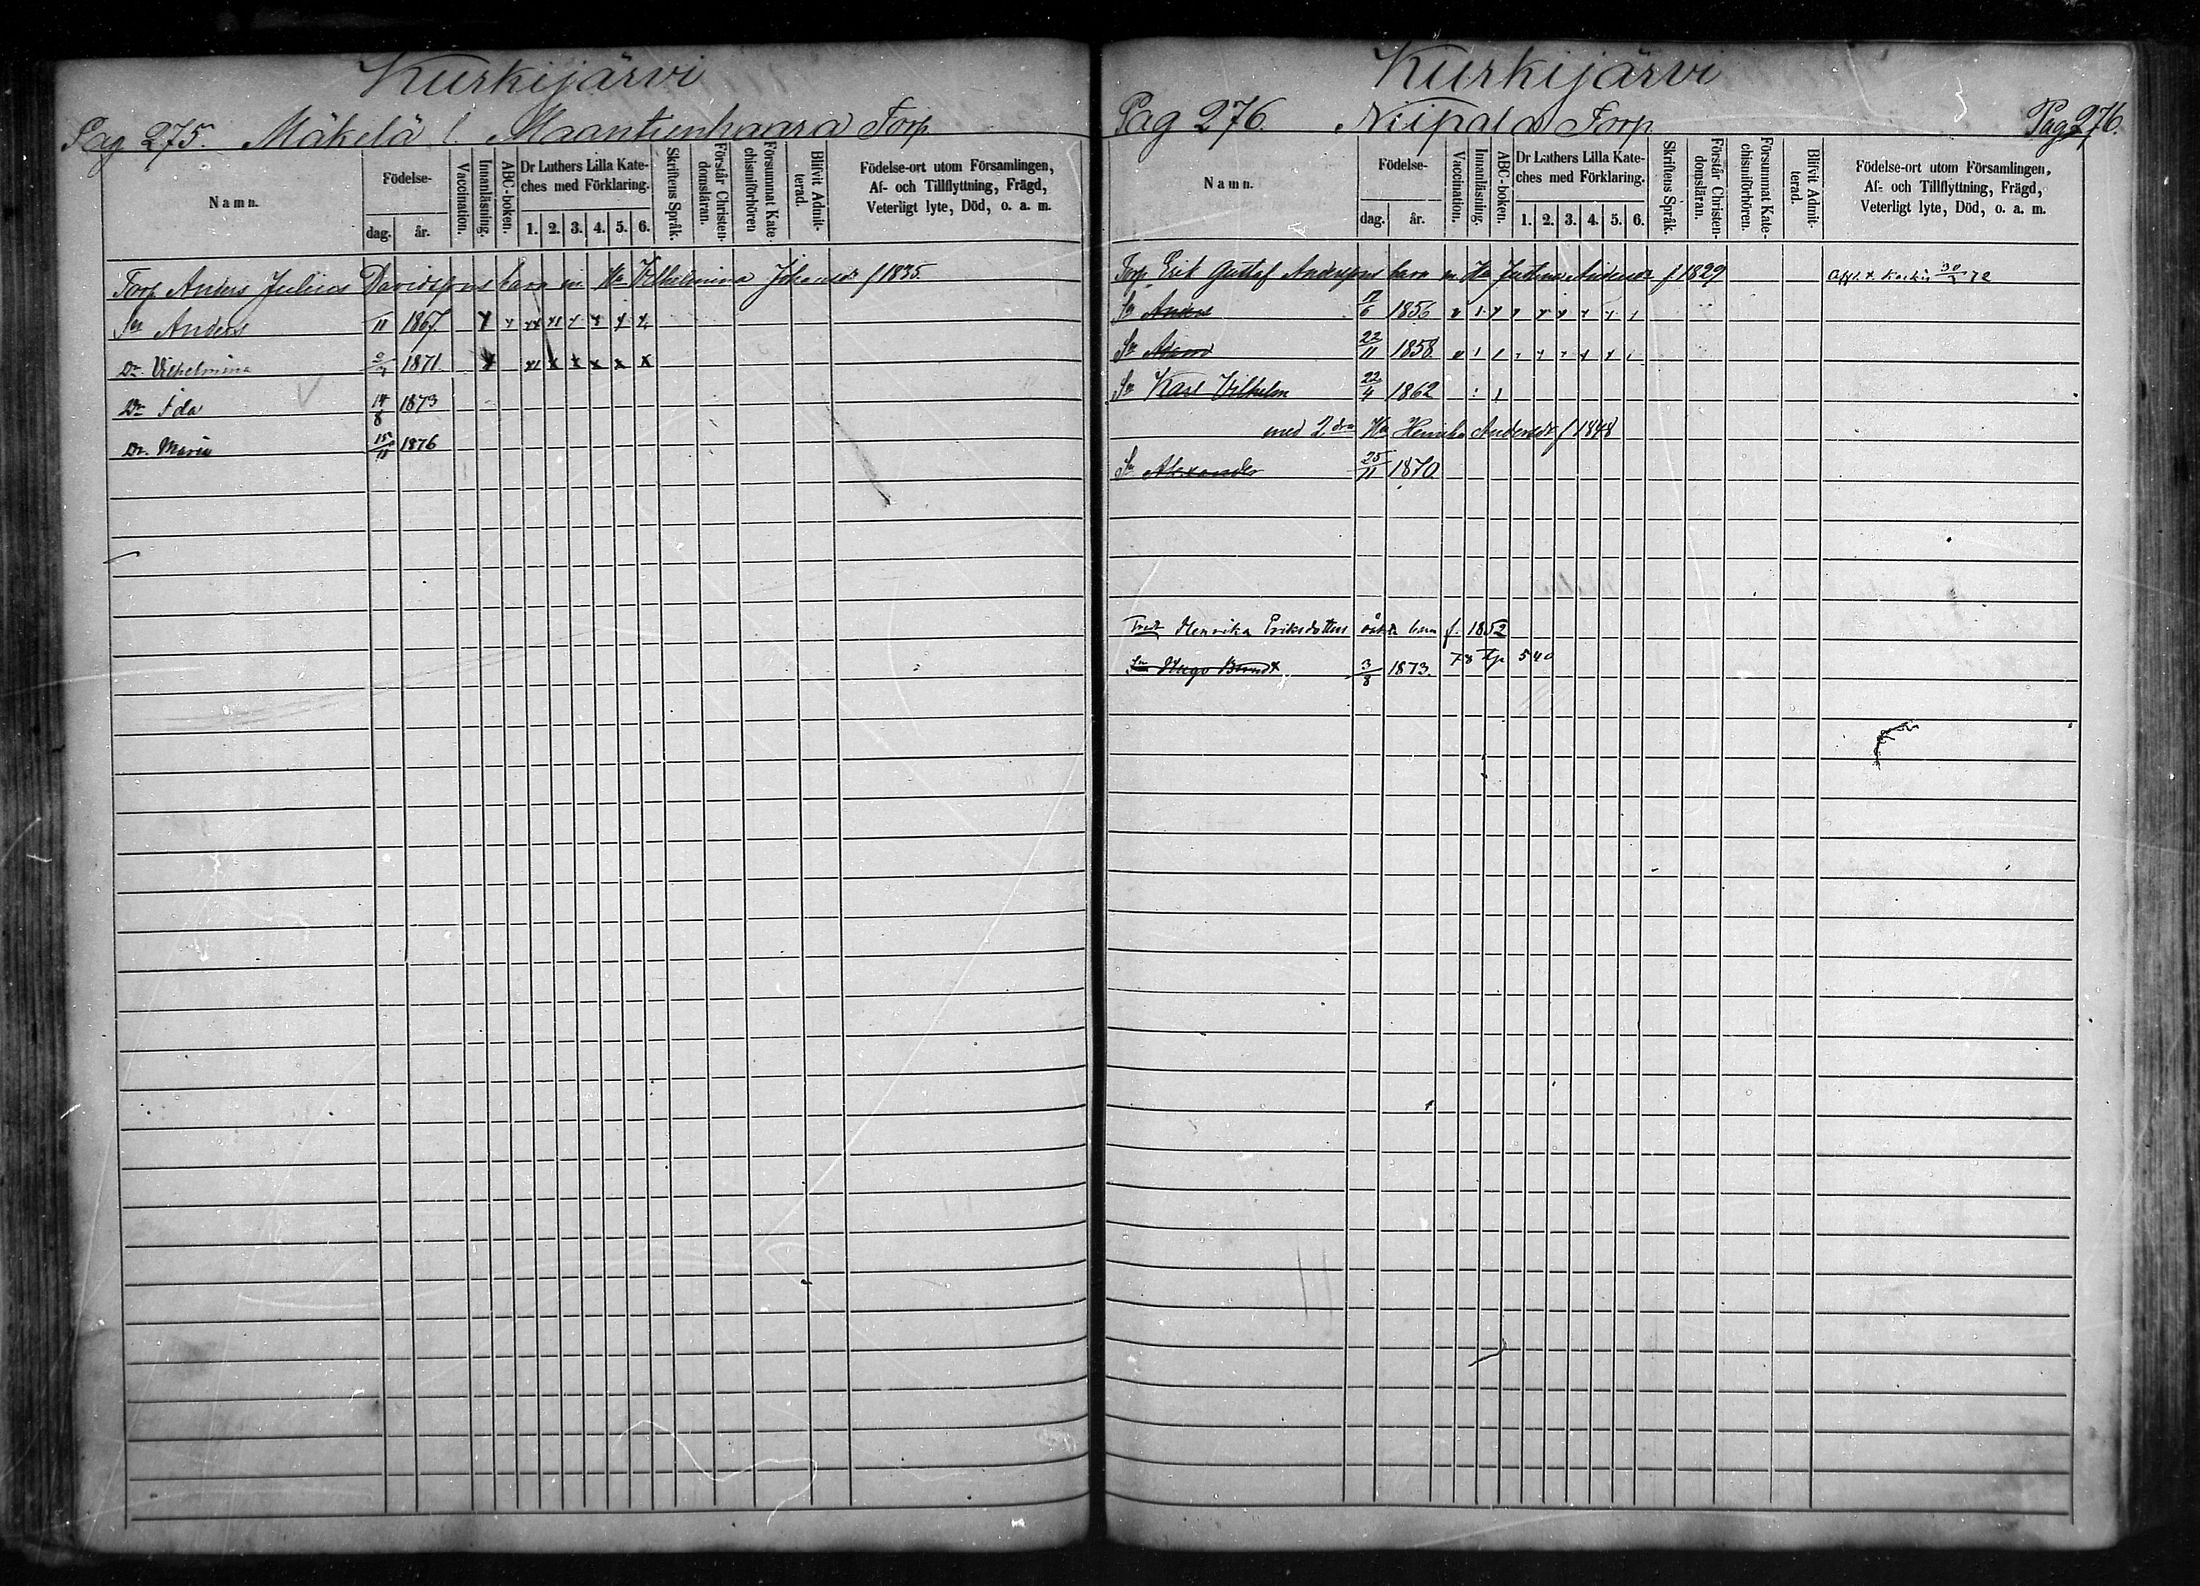 Kurkijärvi
Pag 275. Mäkelä l. Maantienhaara Torp
Namn. Födelse- dag. år. Vaccination. Innanläsning. ABC-boken. Dr Luthers Lilla Kateches med Förklaring. 1. 2. 3. 4. 5. 6. Skriftens Språk. Förstår Christendomsläran. Försummat Katechismiförhören Blifvit Admitterad. Födelse-ort utom Församlingen, Af- och Tillflyttning, Frägd, Veterligt lyte, Död, o. a. m.
Torp Anders Julius Davidssons barn m Ha Vilhelmina Johansdr f 1835
Sn Anders 11 1867
Dr. Vilhelmina 1871
Dr Ida 14/8 1873
Dr. Maria 15/11 1876
Kurkijärvi
Pag 276. Niipala Torp Pag 276.
Namn. Födelse- dag. år. Vaccination. Innanläsning. ABC-boken. Dr Luthers Lilla Kateches med Förklaring. 1. 2. 3. 4. 5. 6. Skriftens Språk. Förstår Christendomsläran. Försummat Katechismiförhören. Blifvit Admitterad. Födelse-ort utom Församlingen, Af- och Tillflyttning, Frägd, Veterligt lyte, Död, o. a. m.
Torp Erik Gustaf Anderssons barn m Ha Andersdr f 1829
Sn Anders 1856
Sn 22/11 1858
Sn Karl Vilhelm 22/4 1862
med 2dra Ha Henrika Andersdr f 1848
Sn Alexander 25/11 1870
Henrika Eriksdotters oäkta barn f. 1852
Sn Hugo 3/8 1873. 78 540